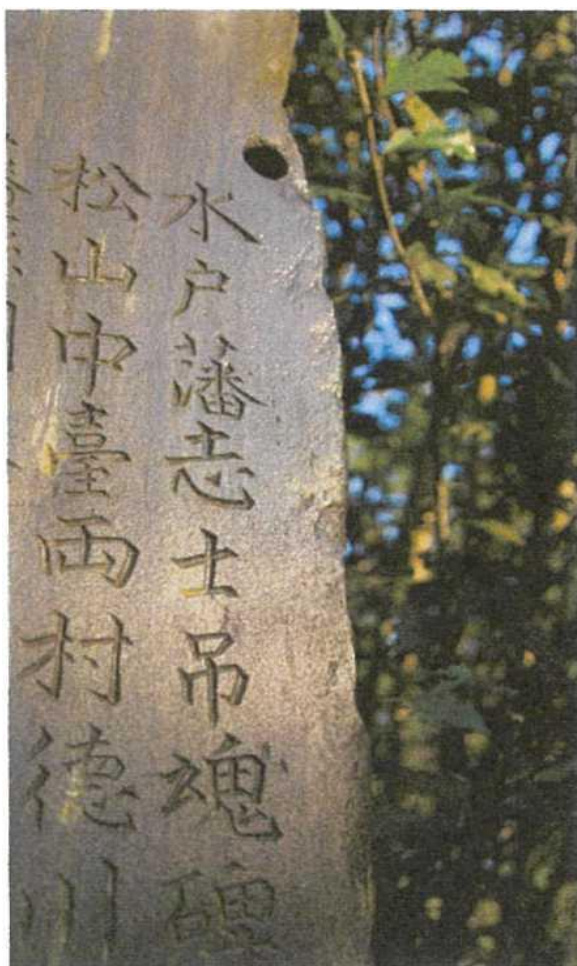 水戸藩志士吊魂碑
松山中臺両村徳川